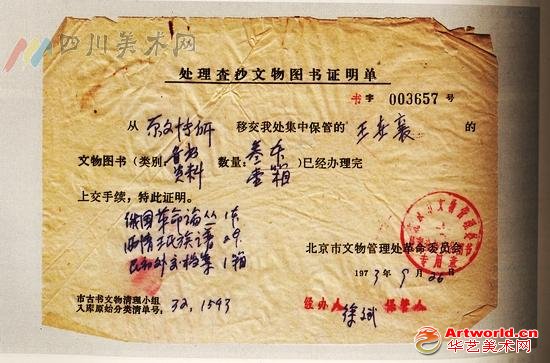 四川美术网
处理查抄文物图书证明单
书字 003657 号
从 移交我处集中保管的 王世襄 的
文物图书(类别:音乐资料 数量:叁本壹箱)已经办理完
上交手续,特此证明。
俄国革命论丛 1本
西清王氏族谱 2本
民初外交档案 1箱
北京市文物管理处革命委员会
专用章
1973年9月26日
市古书文物清理小组
入库原始分类清单号:32,1543
经办人 徐斌 保管人
Artworld.cn
华艺美术网